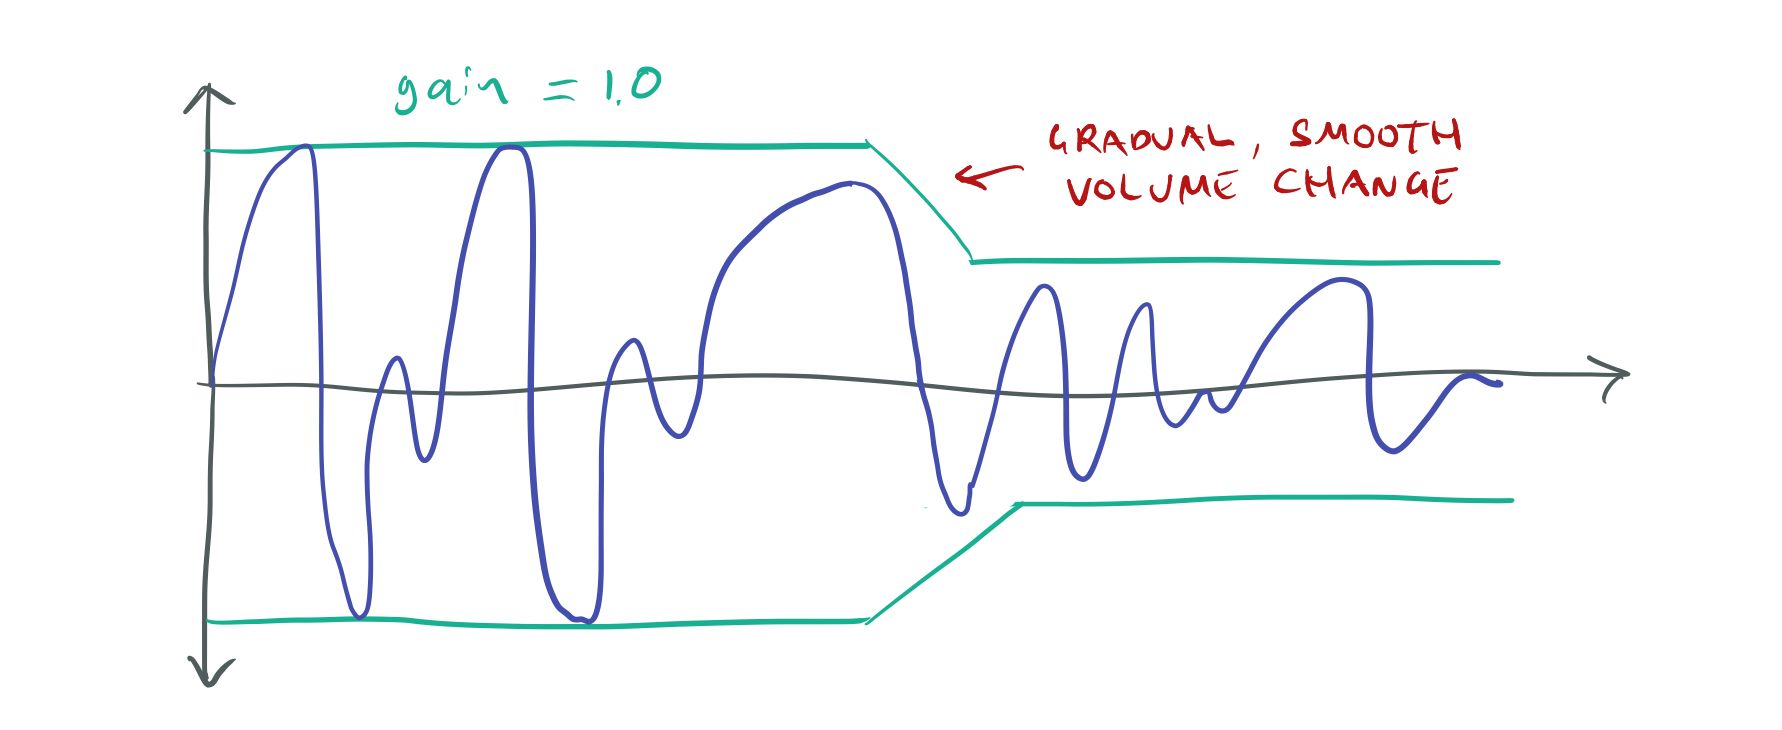 gain = 1.0
GRADUAL, SMOOTH
VOLUME CHANGE